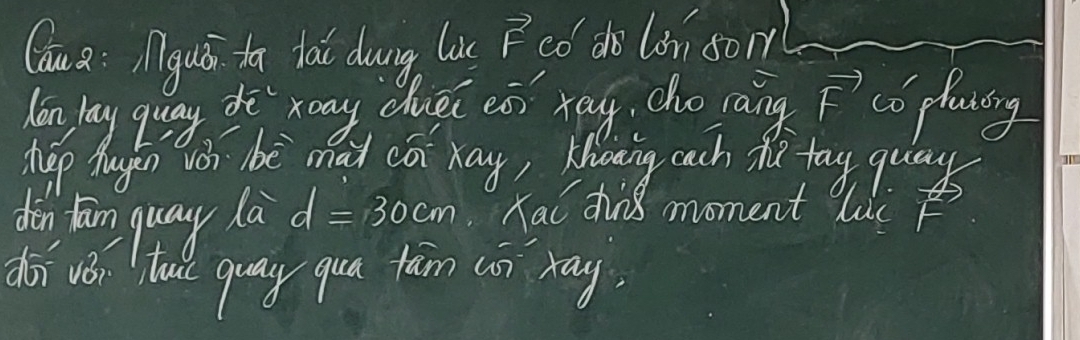 Câu 2: Người ta tác dụng lực F có độ lớn 80N
lên tay quay để xoay chiếc cối xay. cho rằng F có phương
tiếp tuyến với bề mặt cối xay, khoảng cách từ tay quay
đến tâm quay là d = 30cm. Xác định moment lực F.
đối với trục quay qua tâm cối xay.